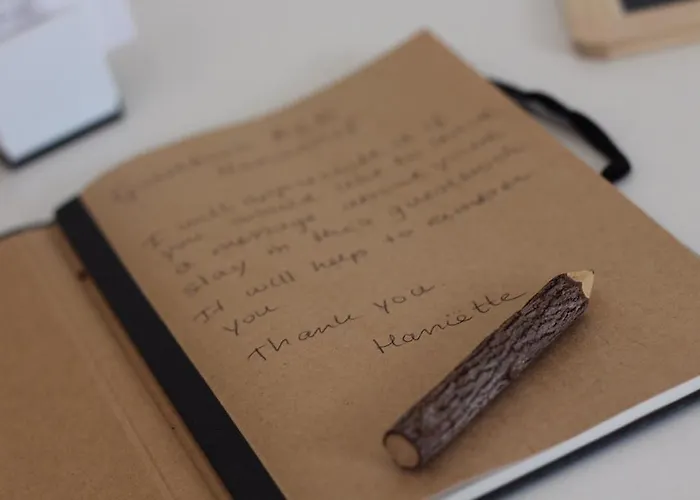 I will appreciate it if
you would like to send
a message around your
stay in this guestbook
It will help to remember
you
Thank you.
Hariëtte